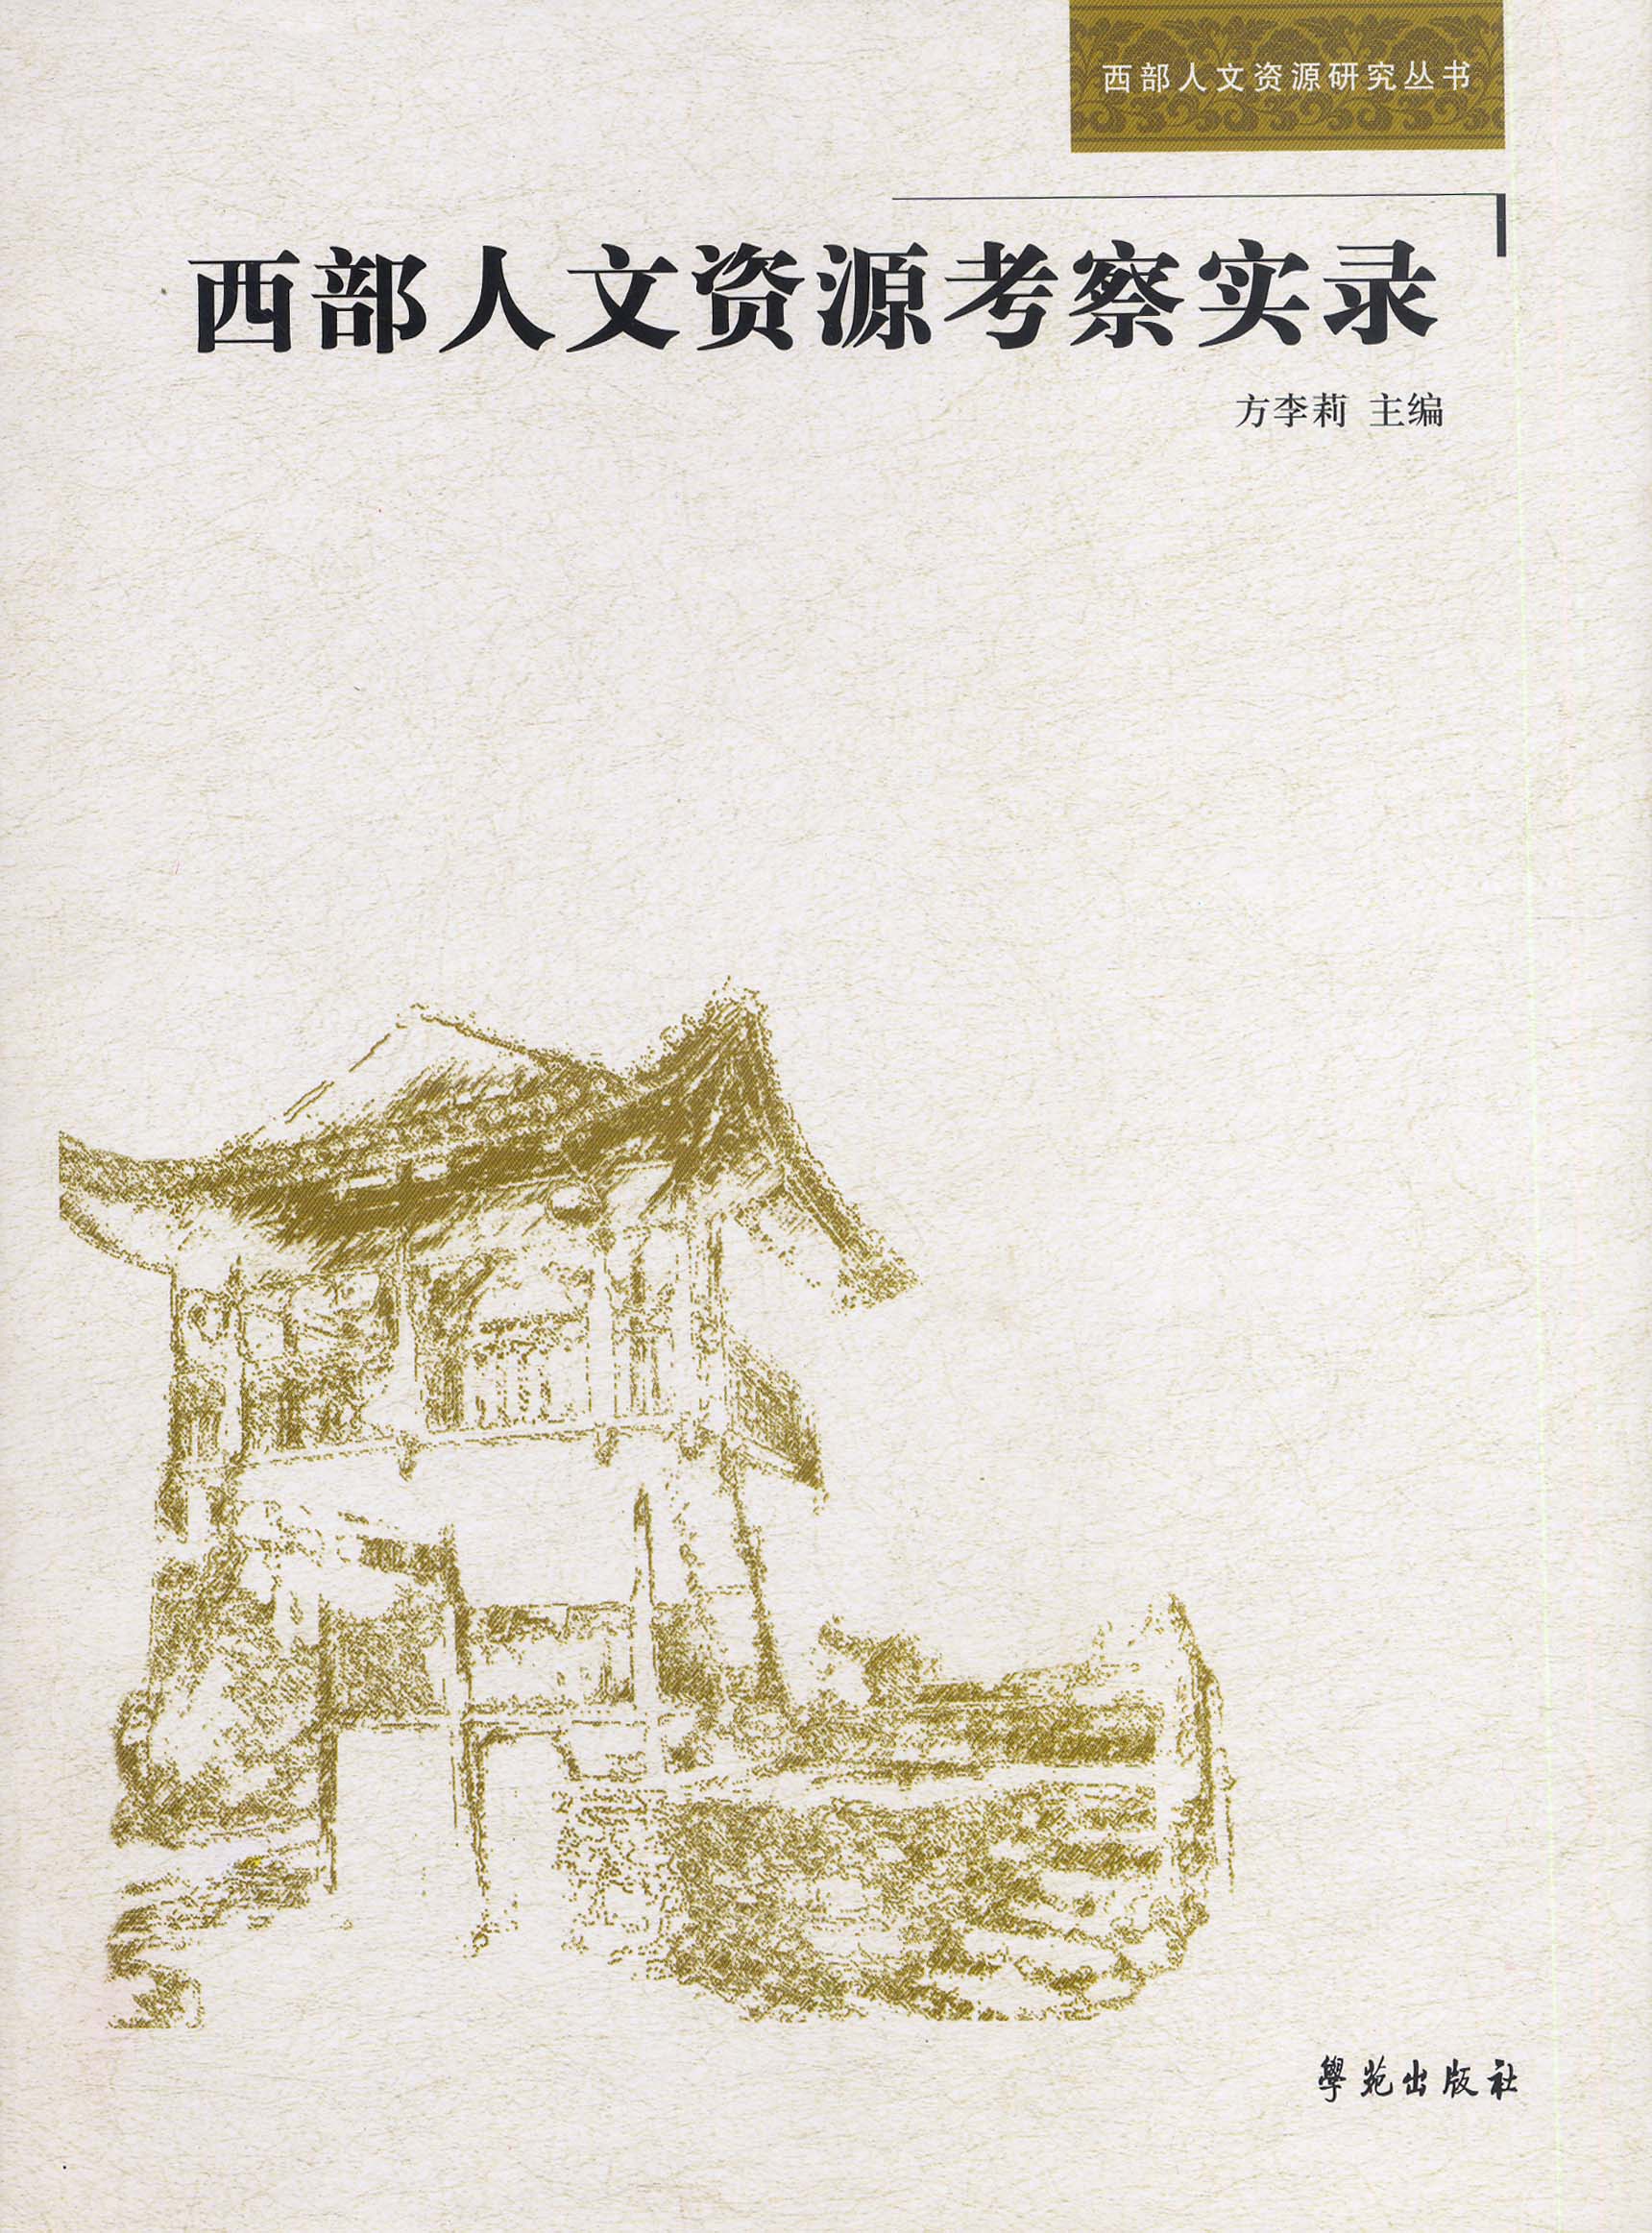 西部人文资源研究丛书
西部人文资源考察实录
方李莉 主编
學苑出版社